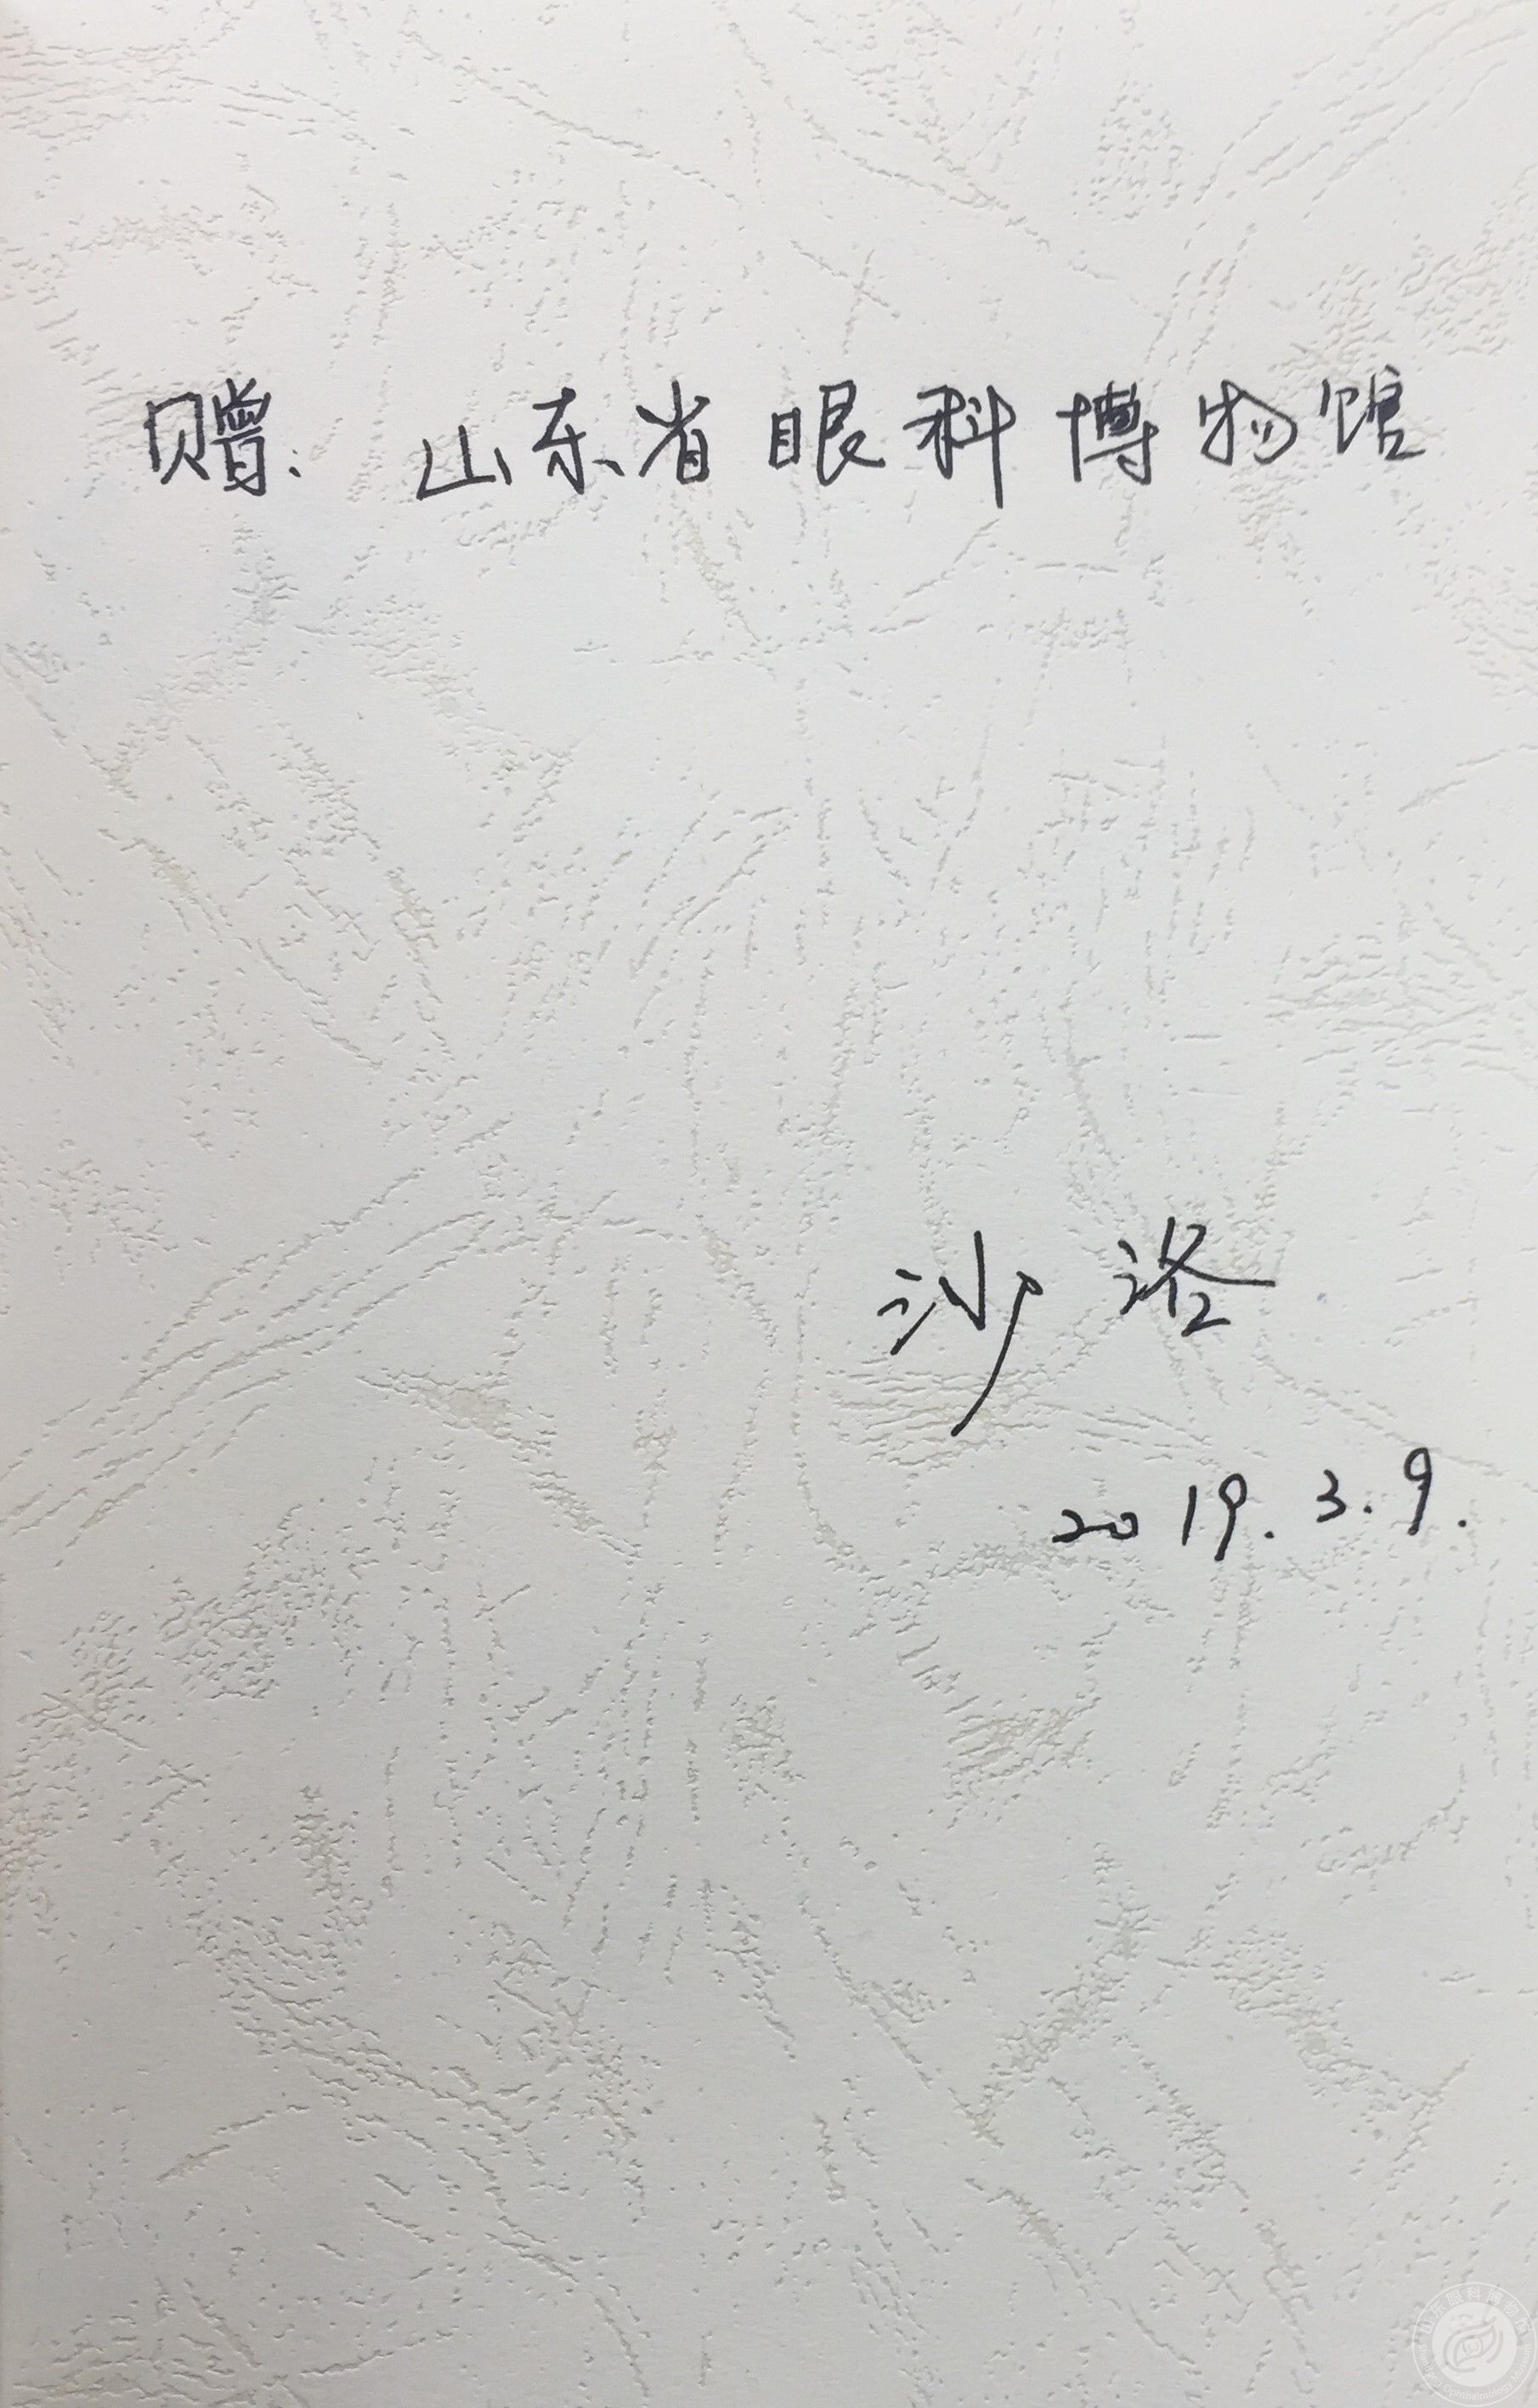 赠：山东省眼科博物馆
沙洛
2019.3.9.